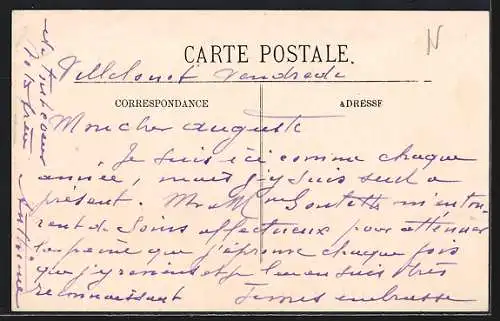 CARTE POSTALE.
Vendredi
CORRESPONDANCE
ADRESSE
Mon cher Auguste
Je suis ici comme chaque
année, mais j'y suis seul a
présent. Mr & Mme m'entou
rent de soins affectueux pour atténuer
la peine que j'éprouve chaque fois
que j'y reviens et je leur en suis très
reconnaissant Je vous embrasse
de tout coeur
Votre frère
Antoine
N